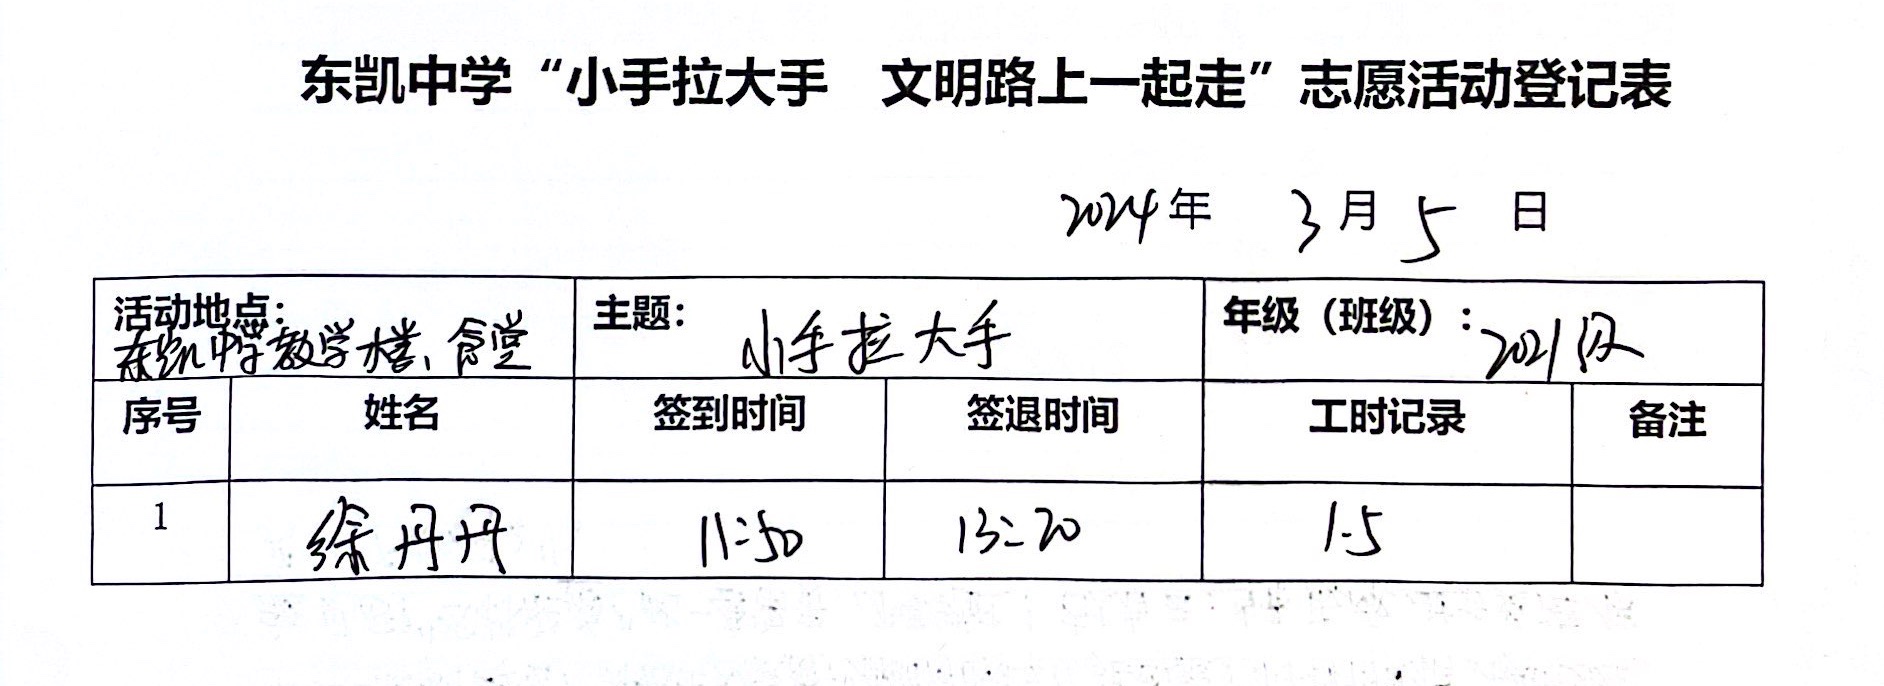 东凯中学“小手拉大手 文明路上一起走”志愿活动登记表
2024年 3月5日
活动地点： 东凯中学教学楼、食堂
主题： 小手拉大手
年级（班级）： 2021级
序号 姓名 签到时间 签退时间 工时记录 备注
1 徐丹丹 11:50 13:20 1.5